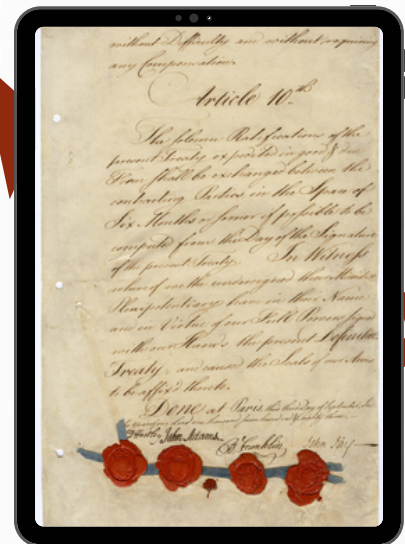 without Difficulty and without requiring
any Compensation.
Article 10th
The solemn Ratifications of the
present Treaty expedited in good & due
Form shall be exchanged between the
contracting Parties in the Space of
Six Months or sooner if possible to be
computed from the Day of the Signature
of the present Treaty. In Witness
whereof we the undersigned their Ministers
Plenipotentiary have in their Name
and in Virtue of our Full Powers signed
with our Hands the present Definitive
Treaty, and caused the Seals of our Arms
to be affix'd thereto.
DONE at Paris, this third day of September, In
the year of our Lord one thousand seven hundred & eighty three.
D Hartley John Adams B Franklin John Jay